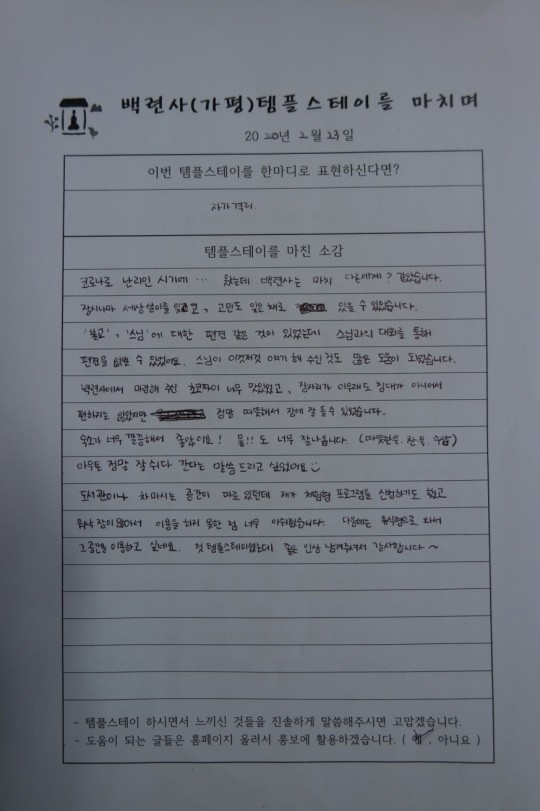 백련사(가평)템플스테이를 마치며
2020년 2월 23일
이번 템플스테이를 한마디로 표현하신다면?
자가격리.
템플스테이를 마친 소감
코로나로 난리인 시기에 … 왔는데 백련사는 마치 다른세계? 같았습니다.
잠시나마 세상살이를 잊고, 고민도 잊은 채로 있을 수 있었습니다.
'불교', '스님'에 대한 편견 같은 것이 있었는데 스님과의 대화를 통해
편견을 없앨 수 있었어요. 스님이 이것저것 얘기 해 주신 것도 많은 도움이 되었습니다.
백련사에서 마련해 주신 초코파이 너무 맛있었고, 잠자리가 아무래도 침대가 아니어서
편하지는 않았지만 정말 따뜻해서 잠에 잘 들 수 있었습니다.
숙소가 너무 깔끔해서 좋았어요! 물!! 도 너무 잘나옵니다. (따뜻한물, 찬물, 수압)
아무튼 정말 잘 쉬다 간다는 말씀 드리고 싶었어요
도서관이나 차마시는 공간이 따로 있던데 제가 체험형 프로그램을 신청하기도 했고
워낙 잠이 많아서 이용을 하지 못한 점 너무 아쉬웠습니다. 다음에는 휴식형으로 와서
그 공간을 이용하고 싶네요. 첫 템플스테이였는데 좋은 인상 남겨주셔서 감사합니다~
- 템플스테이 하시면서 느끼신 것들을 진솔하게 말씀해주시면 고맙겠습니다.
- 도움이 되는 글들은 홈페이지 올려서 홍보에 활용하겠습니다. ( 예 , 아니요 )